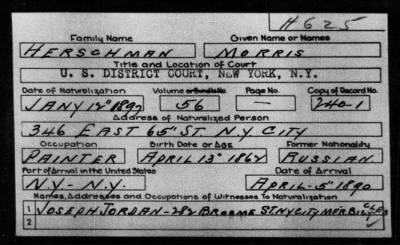 H625
Family Name Given Name or Names
HERSCHMAN MORRIS
Title and Location of Court
U. S. DISTRICT COURT, NEW YORK, N.Y.
Date of Naturalization Volume or Bundle No. Page No. Copy of Record No.
JANY 12" 1897 56 — 240-1
Address of Naturalized Person
346 EAST 65" ST. N.Y CITY
Occupation Birth Date or Age Former Nationality
PAINTER APRIL 13" 1864 RUSSIAN.
Port of Arrival in the United States Date of Arrival
N.Y- N.Y. APRIL-5" 1890
Names, Addresses and Occupations of Witnesses to Naturalization
1 JOSEPH JORDAN-282 BROOME ST. N.Y CITY
2